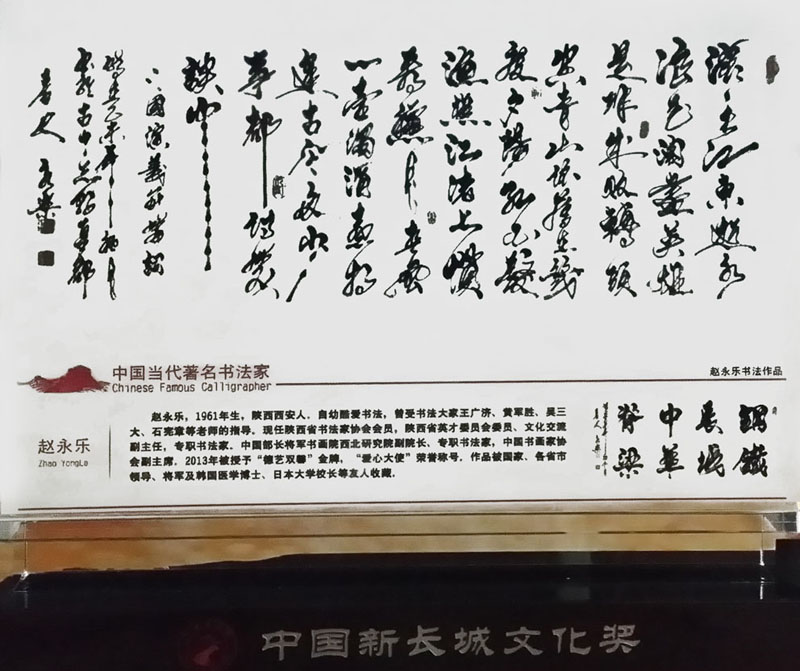 滚滚长江東逝水
浪花淘盡英雄
是非成敗轉頭
空青山依舊在幾
度夕陽紅白髮
漁樵江渚上慣
看秋月春風
一壺濁酒喜相
逢古今多少
事都付笑
談中
中国当代著名书法家
Chinese Famous Calligrapher
赵永乐书法作品
赵永乐
Zhao YongLe
赵永乐，1961年生，陕西西安人．自幼酷爱书法，曾受书法大家王广济、黄军胜、吴三
大、石宪章等老师的指导．现任陕西省书法家协会会员，陕西省英才委员会委员、文化交流
副主任，专职书法家．中国部长将军书画院西北研究院副院长、专职书法家，中国书画家协
会副主席．2013年被授予“德艺双馨”金牌，“爱心大使”荣誉称号．作品被国家、各省市
领导、将军及韩国医学博士、日本大学校长等友人收藏．
鋼鐵
長城
中華
脊梁
中国新长城文化奖